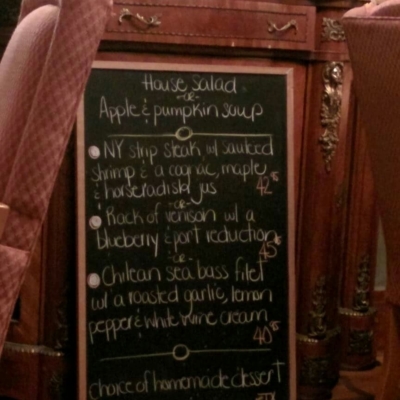 House Salad
-or-
Apple & pumpkin soup
NY strip steak w/ sauteed
shrimp & a cognac, maple
& horseradish jus 42
-or-
Rack of venison w/ a
blueberry & port reduction
45
-or-
Chilean sea bass filet
w/ a roasted garlic, lemon
pepper & white wine cream
40
choice of homemade dessert